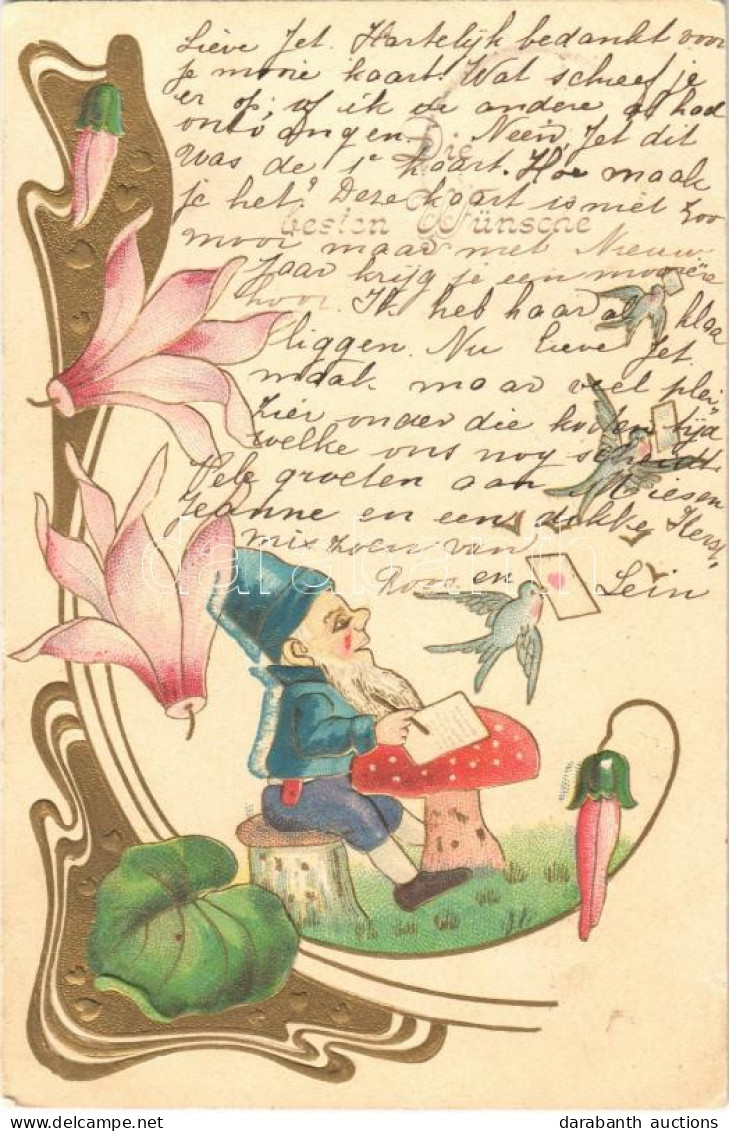 Lieve Jet. Hartelijk bedankt voor
je mooie kaart. Wat schreef je
er op, of ik de andere al had
ontvangen. Neen, Jet dit
was de 1e kaart. Hoe maak
je het? Deze kaart is niet zoo
mooi maar met Nieuw-
jaar krijg je een mooiere
hoor. Ik heb haar al klaar
liggen. Nu lieve Jet
maak maar veel plei-
zier onder die korten tijd
welke ons nog scheidt.
Vele groeten aan Miesen
Jeanne en een dikke Kerst-
mis zoen van
Roos en Lein
Die
besten Wünsche
darabanth
darabanth auctions